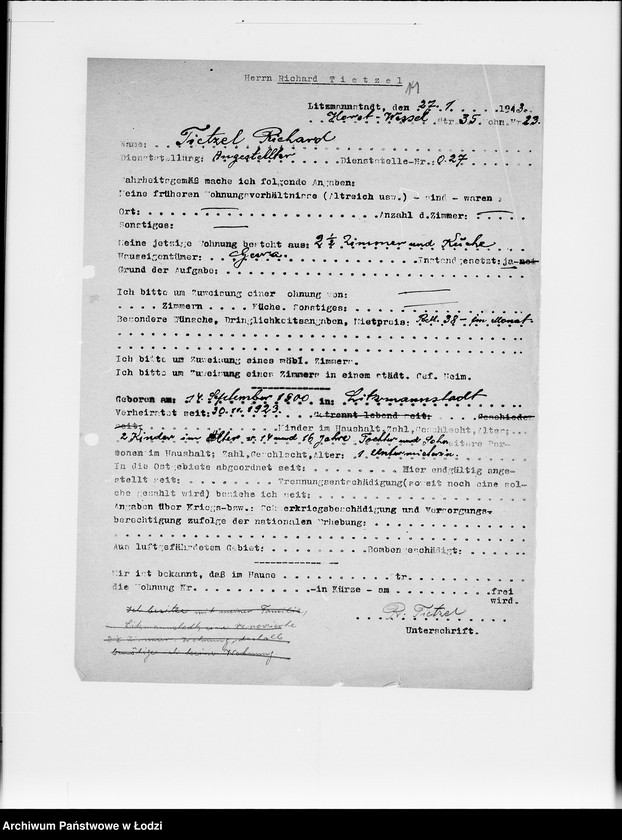 Herrn Richard Tietzel
Litzmannstadt, den 27.1. 1943.
Horst-Wessel Str. 35 ohn. Nr 23.
Name: Tietzel Richard
Dienststellung: Angestellter Dienststelle-Nr.: 027
Wahrheitsgemäß mache ich folgende Angaben:
Meine früheren Wohnungsverhältnisse (Altreich usw.) - sind - waren :
Ort: Anzahl d.Zimmer:
Sonstiges:
Meine jetzige Wohnung besteht aus: 2 ½ Zimmer und Küche
Hauseigentümer: Gewa. Instandgesetzt: ja-nein
Grund der Aufgabe:
Ich bitte um Zuweisung einer Wohnung von:
Zimmern Küche. Sonstiges:
Besondere Wünsche, Dringlichkeitsangaben, Mietpreis: RM. 38 - im Monat
Ich bitte um Zuweisung eines möbl. Zimmers.
Ich bitte um Zuweisung eines Zimmers in einem städt. Gef. Heim.
Geboren am: 14. September 1900 in: Litzmannstadt
Verheiratet seit: 30.11.1923. Getrennt lebend seit: Geschieden
seit: Kinder im Haushalt, Zahl, Geschlecht, Alter:
2 Kinder im Alter v. 14 und 16 Jahre Tochter und Sohn weitere Per-
sonen im Haushalt; Zahl, Geschlecht, Alter: 1 Untermieterin.
In die Ostgebiete abgeordnet seit: Hier endgültig ange-
stellt seit: Trennungsentschädigung(soweit noch eine sol-
che gezahlt wird) beziehe ich seit:
Angaben über Kriegs-bzw.: Schwerkriegsbeschädigung und Versorgungs-
berechtigung zufolge der nationalen Erhebung:
Aus luftgefährdetem Gebiet: Bombengeschädigt:
Mir ist bekannt, daß im Hause Str.
die Wohnung Nr. -in Kürze - am frei
wird.
Ich besitze mit meiner Familie,
Litzmannstadt, eine renovierte
2½ Zimmer Wohnung, deshalb
benötige ich keine Wohnung
R. Tietzel
Unterschrift.
Archiwum Państwowe w Łodzi